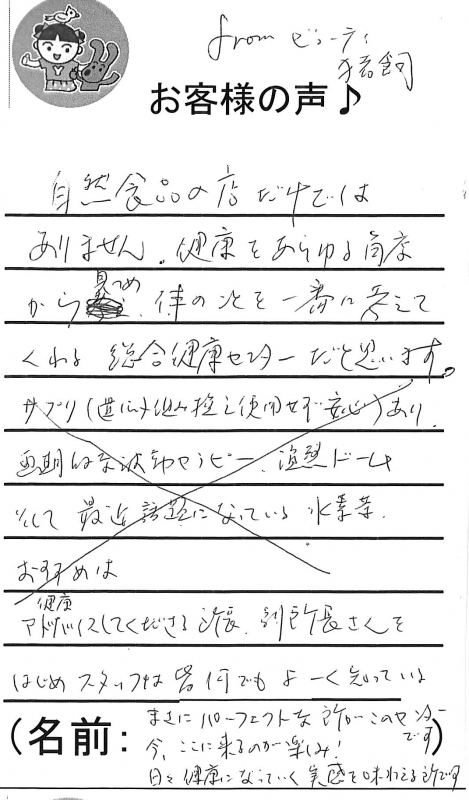 from ビューティ
猪飼
お客様の声♪
自然食品の店だけでは
ありません。健康をあらゆる角度
から見つめ、体のことを一番に考えて
くれる 総合健康センターだと思います。
サプリ(遺伝子組み換え使用せず安心)あり、
画期的な波動セラピー、温熱ドーム
そして 最近話題になっている 水素茶。
おすすめは
健康
アドバイスしてくださる所長、副所長さんを
はじめ スタッフは 皆何でも よーく知っている
(名前:
まさに パーフェクトな 所がこのセンター
です)
今、ここに来るのが楽しみ!
日々 健康になっていく 実感を味わえる所です